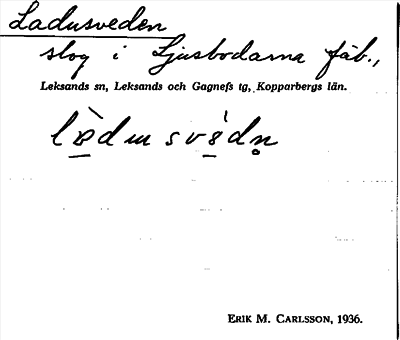 Ladusveden
slog i Ljusbodarna fäb.,
Leksands sn, Leksands och Gagnefs tg, Kopparbergs län.
ERIK M. CARLSSON, 1936.